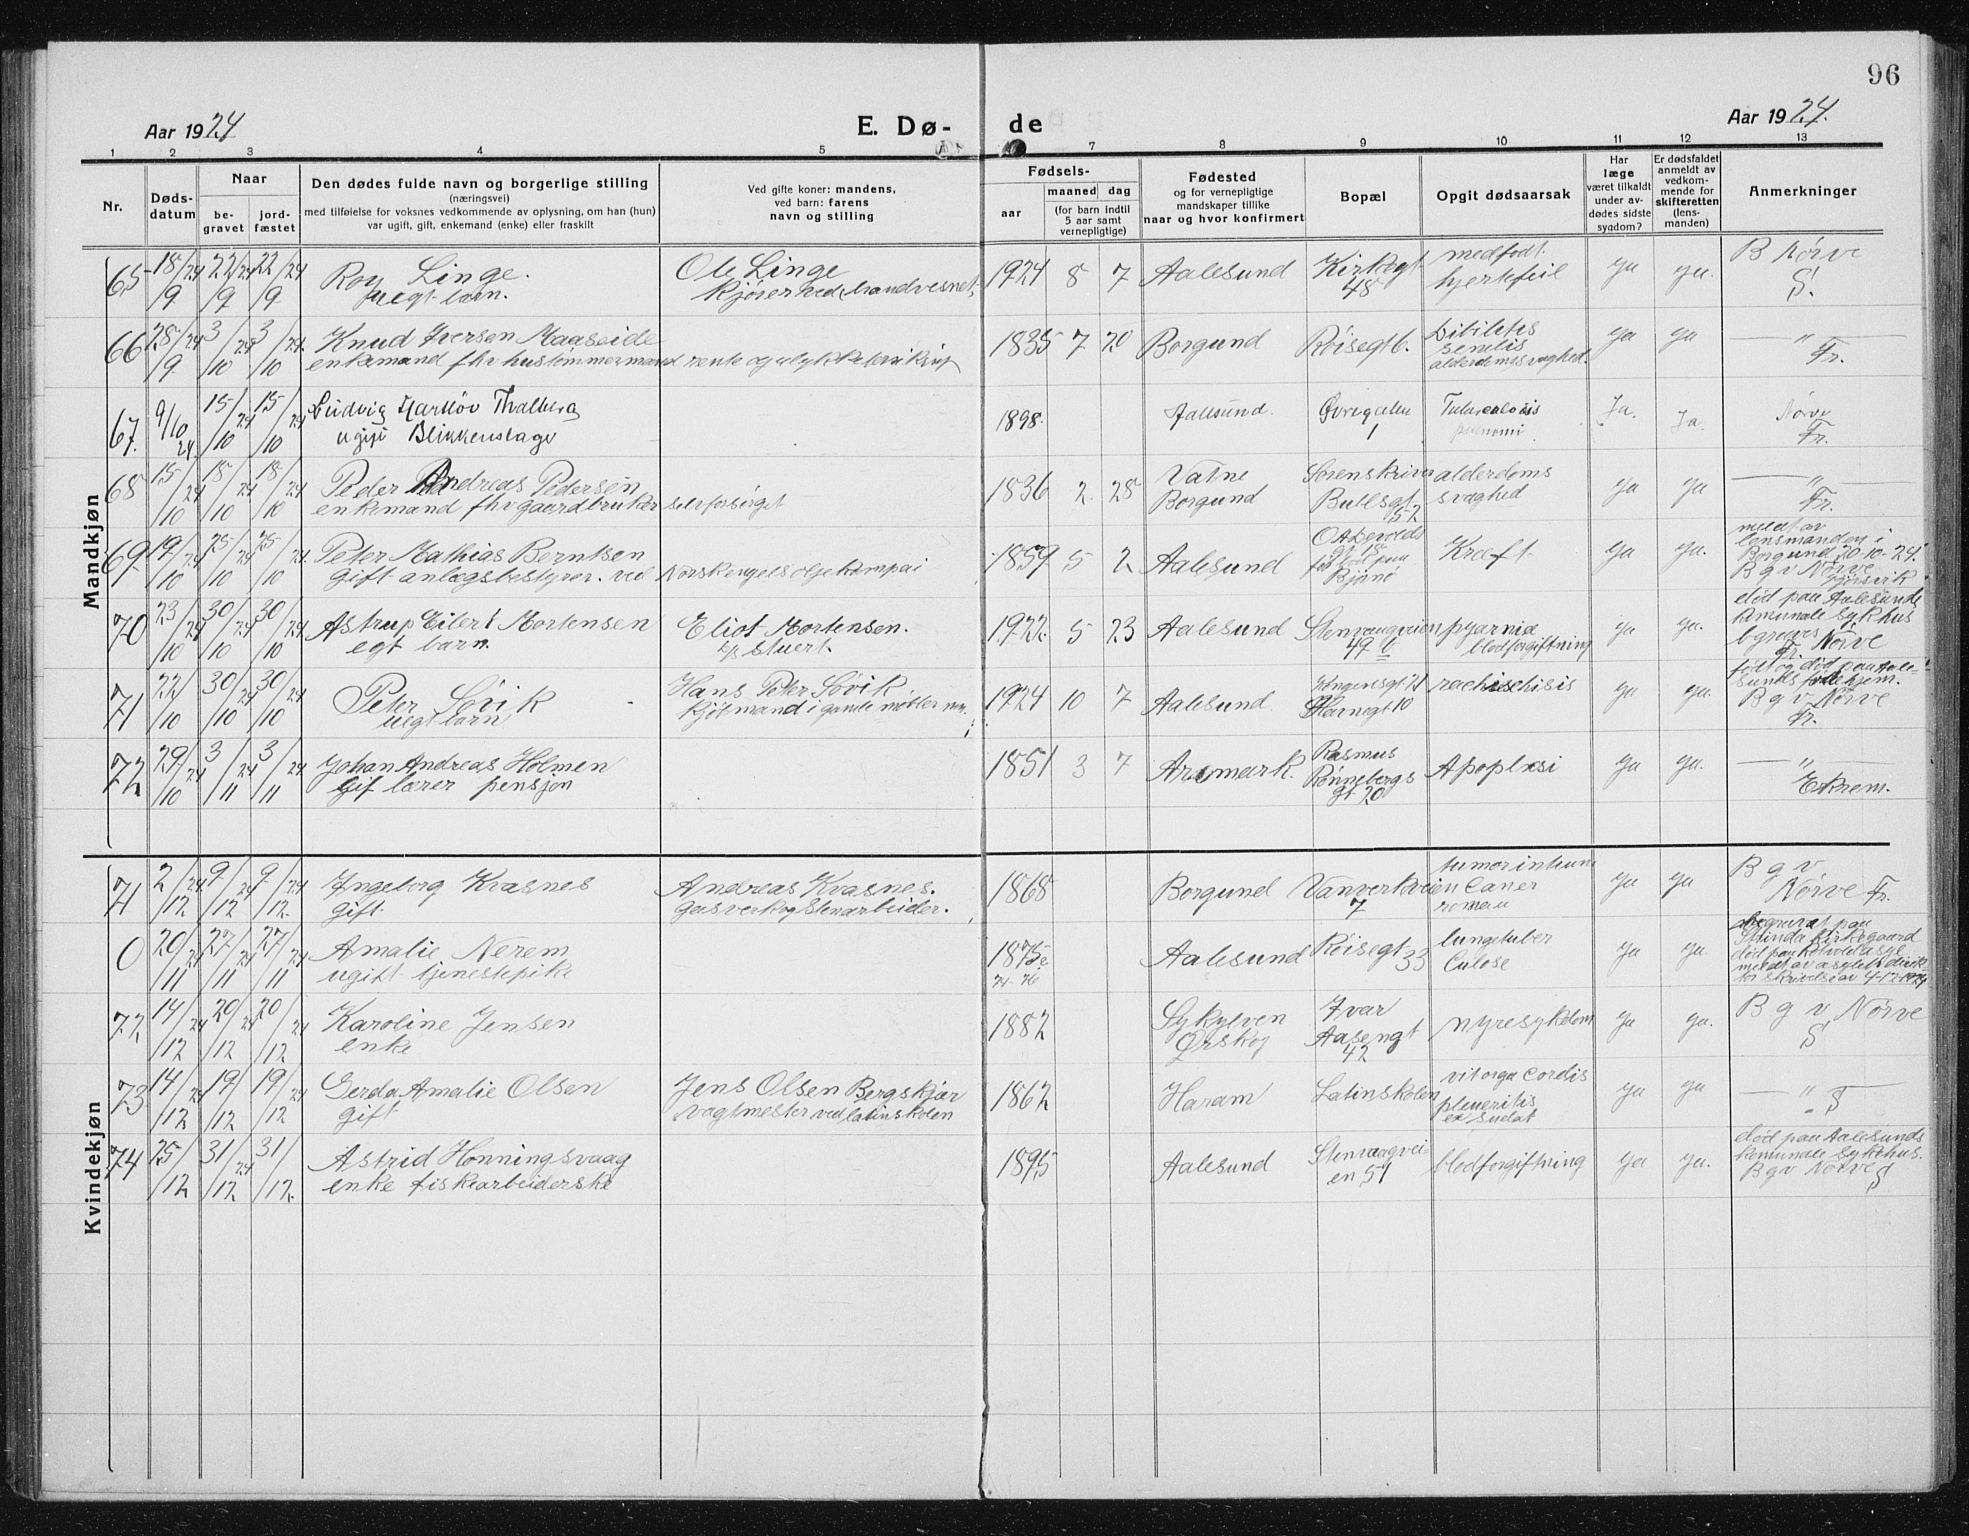 96
Aar 1924
E. Dø-
de
Aar 1924.
1 2 3 4 5 7 8 9 10 11 12 13
Nr.
Døds-
datum
Naar
be-
gravet
jord-
fæstet
Den dødes fulde navn og borgerlige stilling
(næringsvei)
med tilføielse for voksnes vedkommende av oplysning, om han (hun)
var ugift, gift, enkemand (enke) eller fraskilt
Ved gifte koner: mandens,
ved barn: farens
navn og stilling
Fødsels-
aar
maaned dag
(for barn indtil
5 aar samt
vernepligtige)
Fødested
og for vernepligtige
mandskaper tillike
naar og hvor konfirmert
Bopæl
Opgit dødsaarsak
Har
læge
været tilkaldt
under av-
dødes sidste
sygdom?
Er dødsfaldet
anmeldt av
vedkom-
mende for
skifteretten
(lens-
manden)
Anmerkninger
Mandkjøn
65 18/9 24 22/9 24 22/9 24
Roy Linge.
uegt barn.
Ole Linge
kjører ved brandvesnet.
1924 8 7 Aalesund
Kirkegt
48
medfødt
hjertefeil
ja ja.
B Nørve
S.
66 28/9 24 3/10 24 3/10 24
Knud Iversen Maaseide
enkemand fhv hustømmermand
1835 7 20 Borgund Røisegt 6.
senilis
alderdomssvaghed.
ja ja
— " —
Fr.
67. 9/10 24. 15/10 24 15/10 24
Ludvig Thalberg
ugift Blikkenslager
1898. Aalesund.
Øvregaten
1
Tuberculosis
Ja. Ja.
Nørve
Fr.
68 15/10 24 18/10 24 18/10 24
Peder Andreas Pedersen
enkemand fhv gaardbruker selvforsørget
1836 2. 28
Vatne
Borgund
Sorenskriver
Bullsgt.
52
alderdoms
svaghed
ja ja
— " —
Fr.
69 19/10 24 25/10 24 25/10 24
Peter Mathias Berntsen
gift anlægsbestyrer. ved
1859 5 2 Aalesund
Kræft
ja ja.
meldt av
lensmanden i
Borgund 20-10-24.
B g v Nørve
70 23/10 24 30/10 24 30/10 24
Astrup Eilert Mortensen
egt barn.
Eliot Mortensen.
stuert.
1922. 5 23 Aalesund
Stenvaagveien
49 b
pyæmia
blodforgiftning
ja ja.
død paa Aalesunds
komunale sykhus
Nørve
Fr.
71 22/10 24 30/10 24 30/10 24
Peter Søvik
uegt barn
Hans Peter Søvik
kjøtmand i gamle møbler
1924 10 7 Aalesund.
rachischisis
ja ja.
født og død paa Aale-
sunds fødehjem.
B g v Nørve
Fr.
72 29/10 24 3/11 24 3/11 24
Johan Andreas Holmen
Gif lærer pensjon
1851 3 7 Aremark.
Rasmus
Rønnebergs
gt. 20
Apopleksi
ja ja.
— " —
Ekrem.
Kvindekjøn
71 2/12 24 9/12 24 9/12 24
Ingeborg Kvasnes
gift.
Andreas Kvasnes.
gasverk og stenarbeider.
1868 Borgund
7
ja ja
B g v
Nørve Fr.
0 20/11 24 27/11 24 27/11 24
Amalie Nerem
ugift tjenestepike
1875
Aalesund Røisegt 33
lungetuber
culose
ja ja
begravet paa
kirkegaard
4-12-1924
72 14/12 24 20/12 24 20/12 24
Karoline Jensen
enke
1882
Sykylven
Ørskog
Ivar
Aasengt
42
nyresykdom
ja ja.
B g v Nørve
S
73 14/12 24 19/12 24 19/12 24
Gerda Amalie Olsen
gift
Jens Olsen Bergskjær
vagtmester ved latinskolen
1862 Haram Latinskolen
cordis
pleuritis
exsudat
ja ja
— " —
S
74 25/12 31/12 24 31/12.
Astrid Honningsvaag
enke fiskearbeiderske
1895 Aalesund
Stenvaagvei-
en 51
blodforgiftning
ja ja.
død paa Aalesunds
komunale sykehus.
B g v Nørve
S